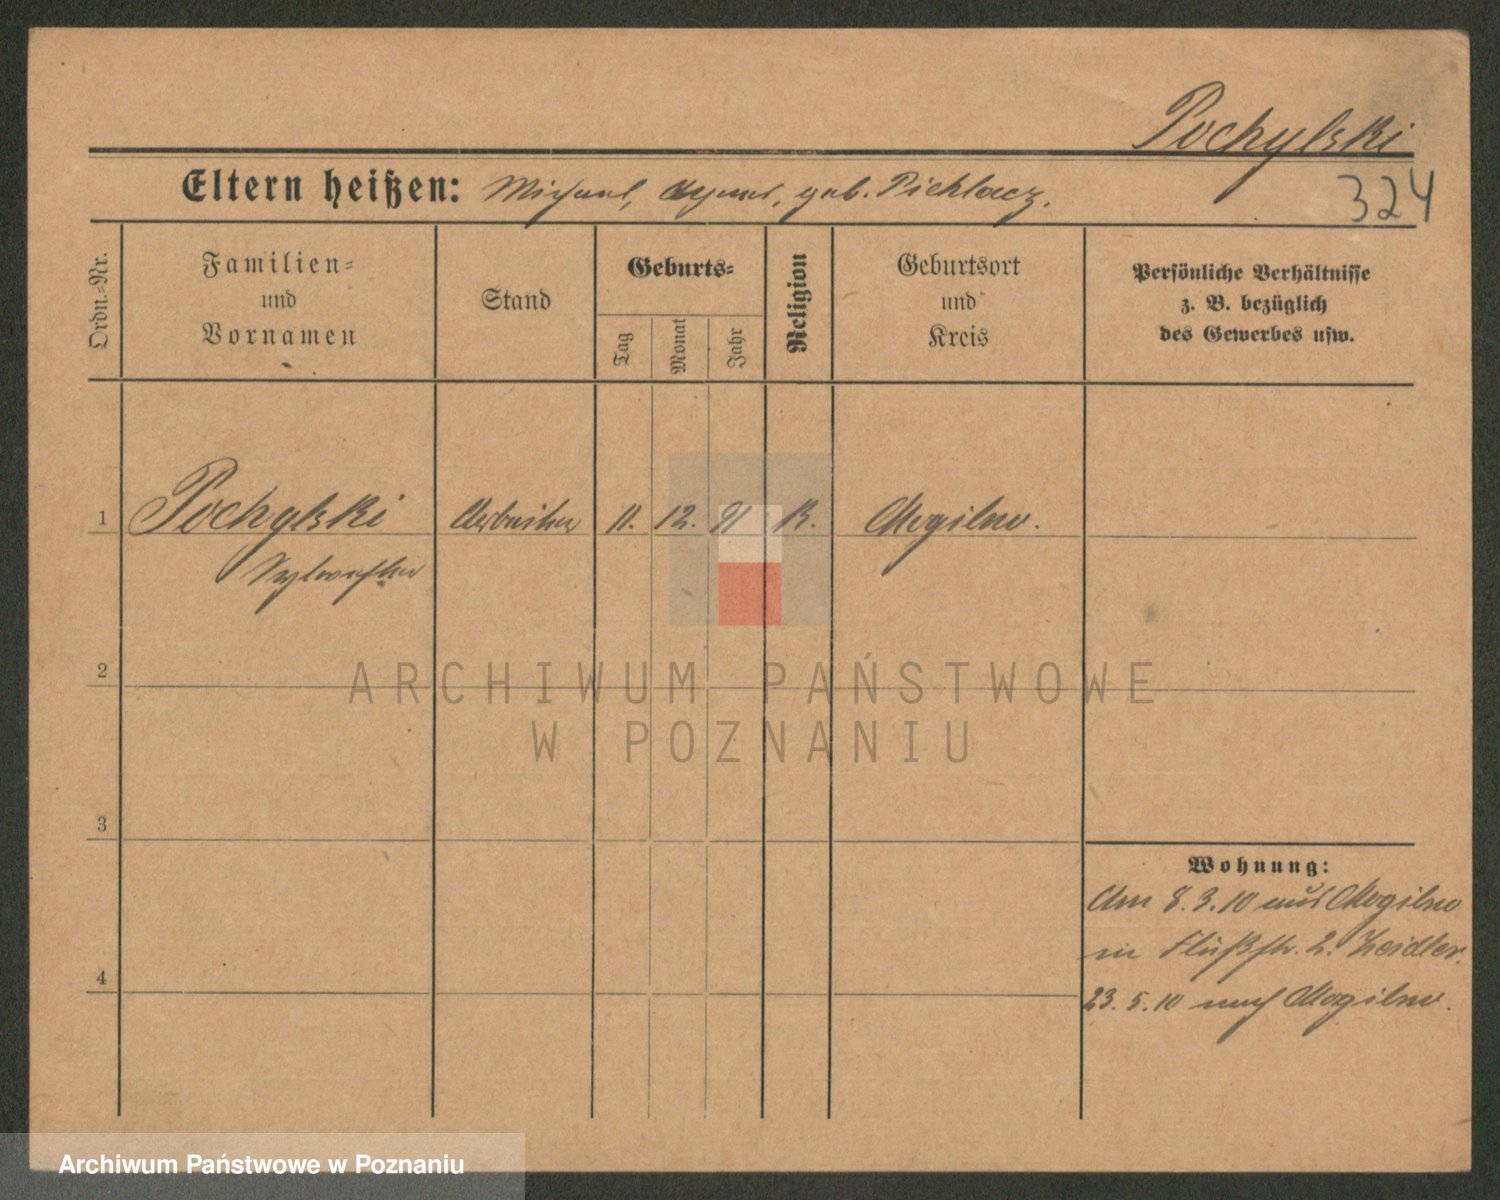 Pochylski
324
Eltern heißen: Michael, Agnes, geb. Pichlacz.
Ordn.=Nr.
Familien=
und
Vornamen
Stand
Geburts=
Tag
Monat
Jahr
Religion
Geburtsort
und
Kreis
Persönliche Verhältnisse
z. B. bezüglich
des Gewerbes usw.
1 Pochylski Arbeiter 11. 12. 91 K. Mogilno.
Sylvester
2
3
4
Wohnung:
Am 8.3.10 aus Mogilno
in Flußstr. 2. Zeidler.
23.5.10 nach Mogilno.
ARCHIWUM PAŃSTWOWE
W POZNANIU
Archiwum Państwowe w Poznaniu